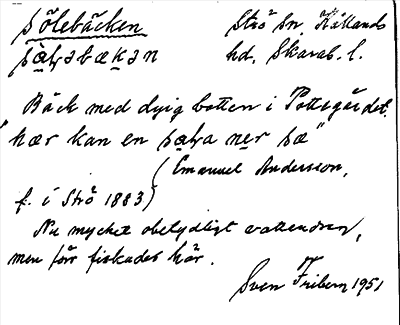 Sölebäcken Strö Sn, Kållands
sǫlabækan hd, Skarab. l.
Bäck med dyig botten i Pottsgärdet.
"hær kan en sǫla ner sæ"
(Emanuel Andersson,
f. i Strö 1883)
Nu mycket obetydligt vattendrag,
men förr fiskades här.
Sven Fribern 1951